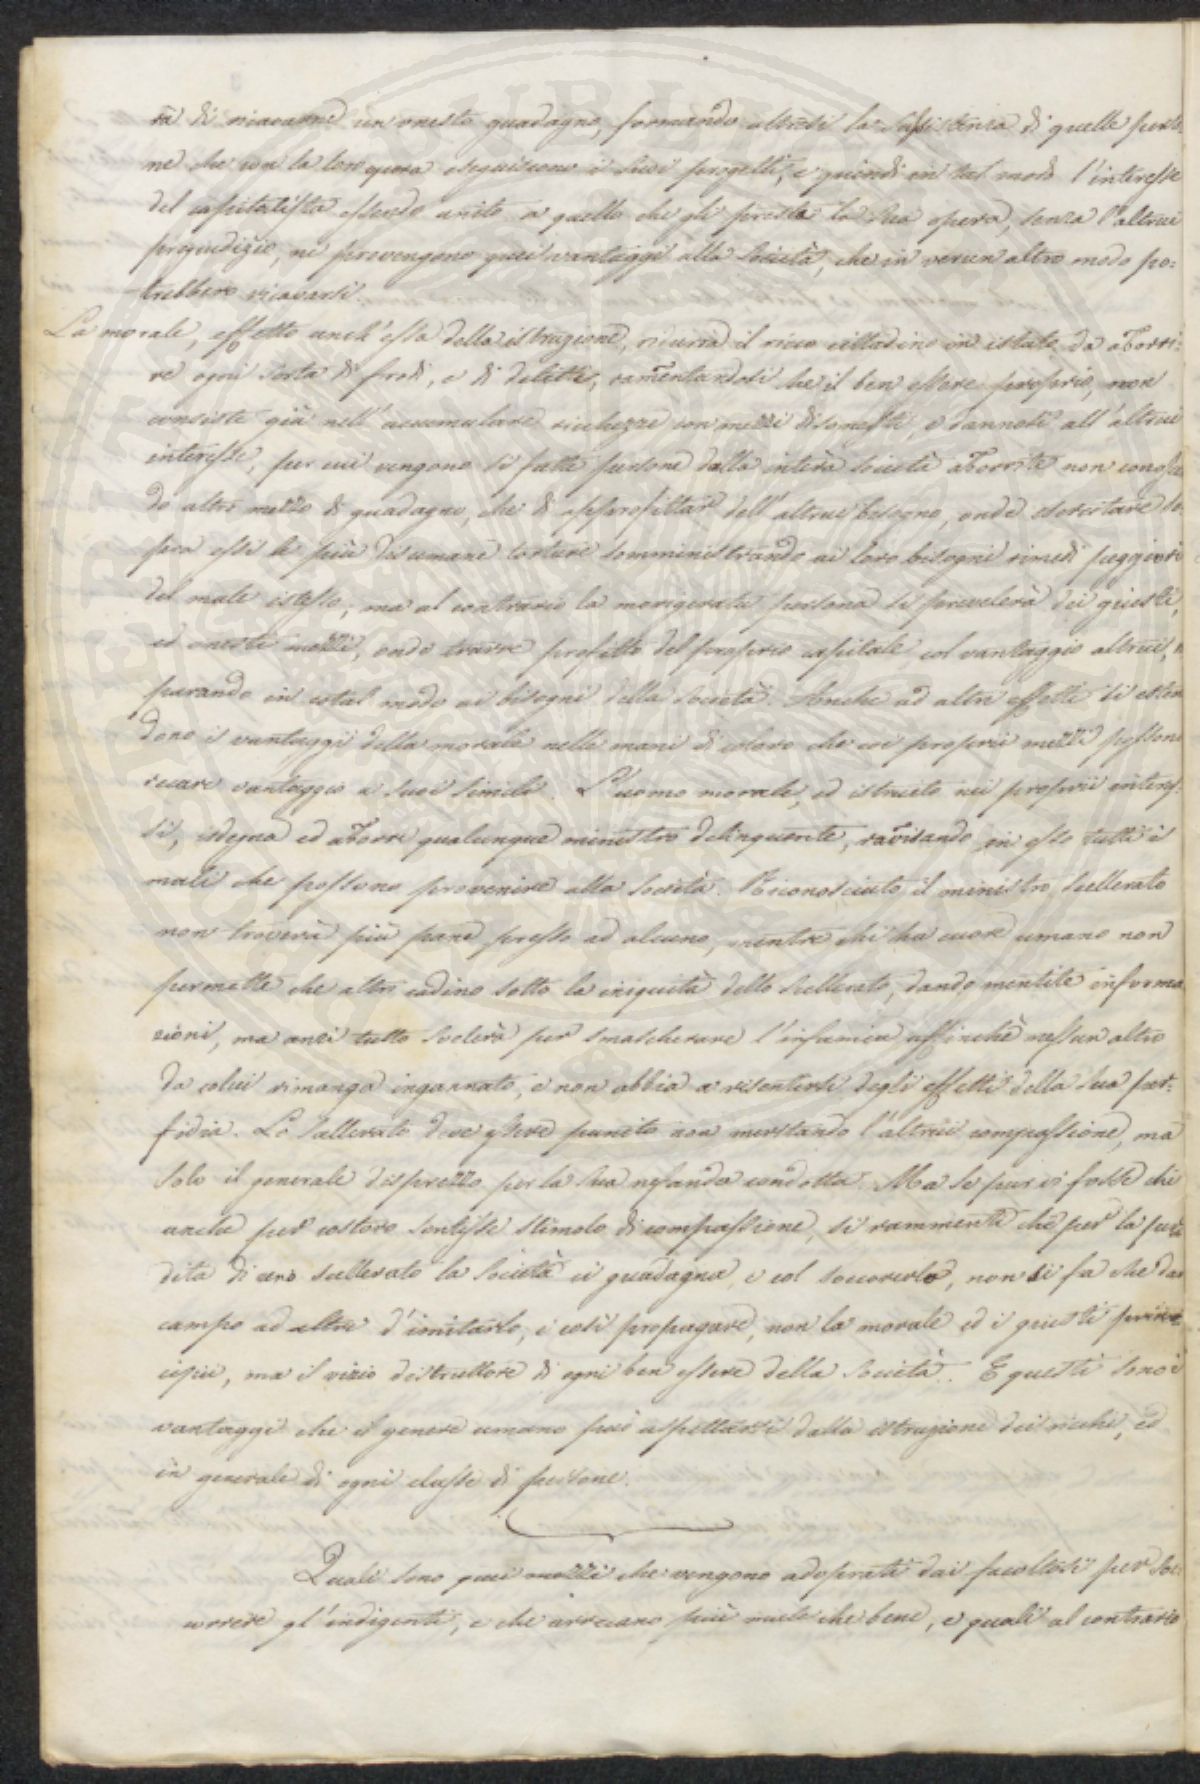 rà di ricavarne un onesto guadagno, formando altresì la sussistenza di quelle perso=
ne che con la loro opera eseguiscono i suoi progetti, e quindi in tal modo l'interesse
del capitalista essendo unito a quello che gli presta la sua opera, senza l'altrui
pregiudizio, ne provengono quei vantaggi alla Società, che in verun altro modo po=
trebbero ricavarsi.
La morale, effetto anch'essa della istruzione, ridurrà il ricco cittadino in istato da aborri=
re ogni sorta di frodi, e di delitti, ramentandosi che il ben essere proprio, non
consiste già nell'accumulare ricchezze con mezzi disonesti, e dannosi all'altrui
interesse, per cui vengono sì fatte persone dalla intera società aborrite non conoscen
do altro mezzo di guadagno, che di approfittar dell'altrui bisogno, onde esercitare so
pra essi le più disumane torture somministrando ai loro bisogni rimedi peggiori
del male istesso, ma al contrario la morigerata persona si prevalerà dei giusti,
ed onesti mezzi, onde trarre profitto del proprio capitale col vantaggio altrui,
parando in cotal modo ai bisogni della società. Anche ad altri effetti si esten
dono i vantaggi della morale nelle mani di coloro che coi proprii mezzi possono
recare vantaggio a suoi simili. L'uomo morale, ed istruito nei proprii interes=
si, sdegna ed aborre qualunque ministro delinquente, ravisando in esso tutti i
mali che possono provenire alla società. Riconosciuto il ministro scellerato
non troverà più pane presso ad alcuno, mentre chi ha cuore umano non
permette che altri cadino sotto la iniquità dello scellerato, dando mentite informa
zioni, ma anzi tutto svelerà per smascherare l'infamia affinché nessun altro
da colui rimanga ingannato, e non abbia a risentirsi degli effetti della sua per=
fidia. Lo scellerato deve essere punito non meritando l'altrui compassione, ma
solo il generale disprezzo per la sua nefanda condotta. Ma se pur vi fosse chi
anche per costoro sentisse stimolo di compassione, si rammenti che per la per
dita di uno scellerato la Società ci guadagna, e col soccorerlo, non si fa che dar
campo ad altri d'imitarlo, e così propagare, non la morale ed i giusti prin=
cipii, ma il vizio distruttore di ogni ben essere della Società. E questi sono i
vantaggi che il genere umano può aspettarsi dalla istruzione dei ricchi, ed
in generale di ogni classe di persone.
Quali sono quei mezzi che vengono adoprati dai facoltosi per soc=
correre gl'indigenti, e che arrecano più male che bene, e quali al contrario